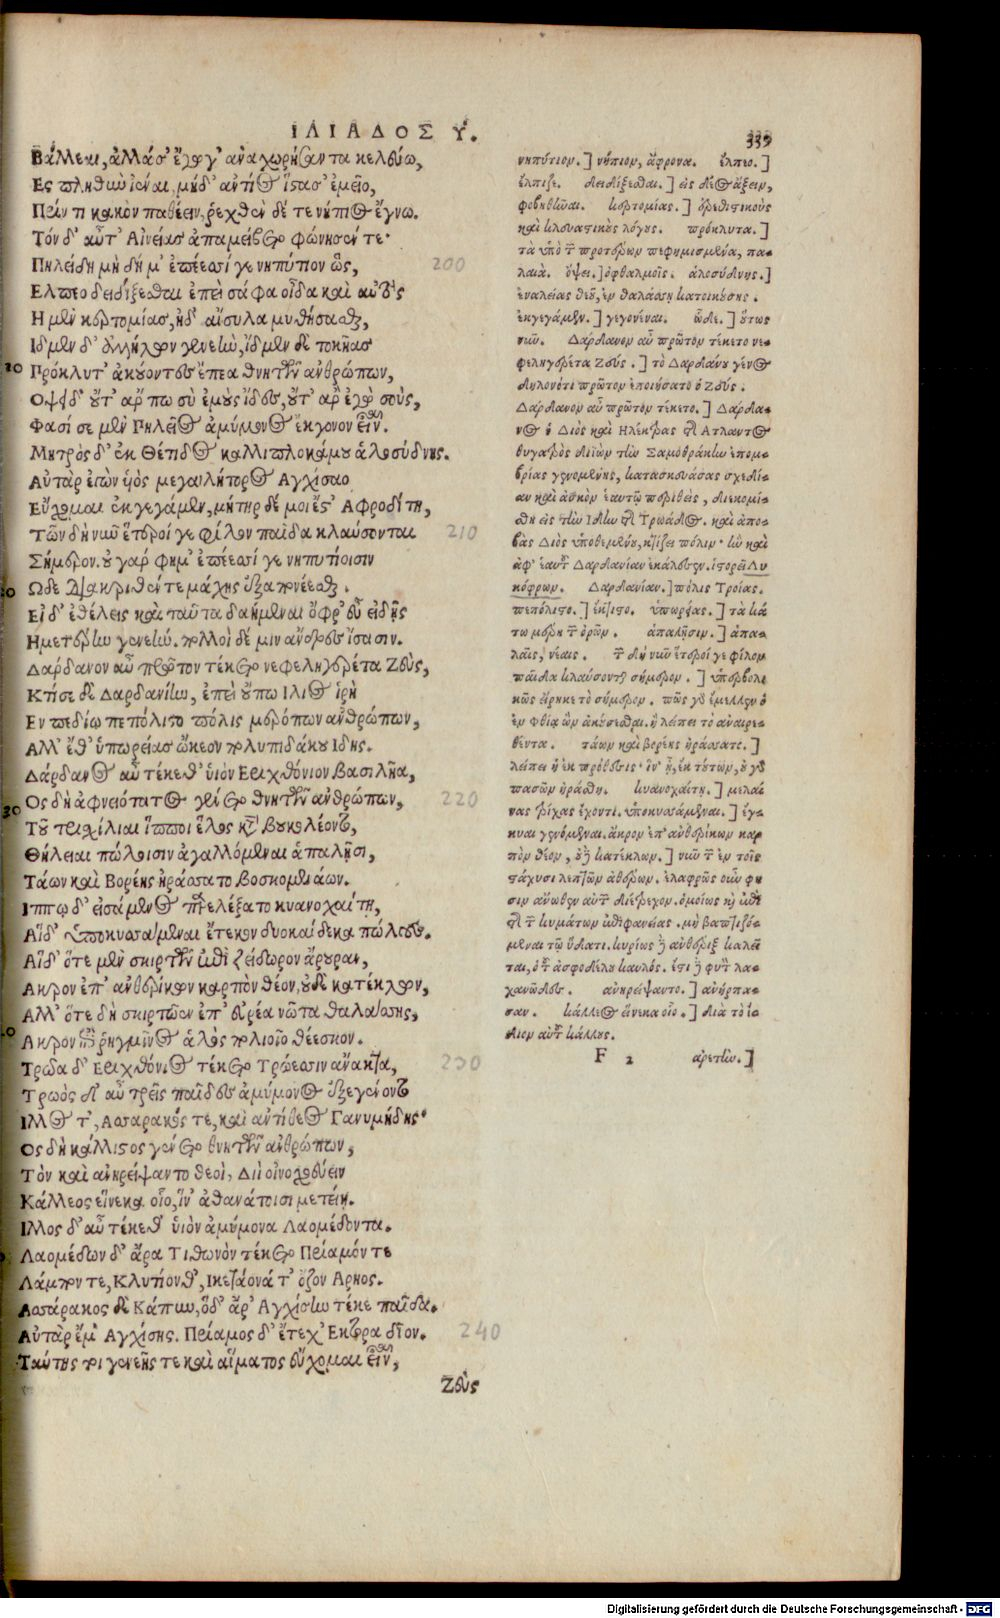 ΙΛΙΑΔΟΣ Υ.
339
Βάλλεαι, ἀλλά σ' ἔγωγ' ἀναχωρήσαντα κελεύω,
Ες πληθὺν ἰέναι, μηδ' ἀντίος ἵστασ' ἐμεῖο,
Πρίν τι κακὸν παθέειν, ῥεχθὲν δέ τε νήπιος ἔγνω.
Τόν δ' αὖτ' Αἰνείας ἀπαμείβετο φώνησέν τε·
Πηλείδη μὴ δή μ' ἐπέεσσί γε νηπύτιον ὣς, 200
Ελπεο δειδίξεσθαι ἐπεὶ σάφα οἶδα καὶ αὐτὸς
Η μὲν κερτομίας, ἠδ' αἴσυλα μυθήσασθαι,
Ιδμεν δ' ἀλλήλων γενεὴν, ἴδμεν δὲ τοκῆας
Πρόκλυτ' ἀκούοντες ἔπεα θνητῶν ἀνθρώπων,
Οψει δ' οὔτ' ἄρ πω σὺ ἐμοὺς ἴδες, οὔτ' ἄρ ἐγὼ σούς,
Φασί σε μὲν Πηλῆος ἀμύμονος ἔκγονον εἶναι.
Μητρὸς δ' ἐκ Θέτιδος καλλιπλοκάμου ἁλοσύδνης.
Αὐτὰρ ἐγὼν υἱὸς μεγαλήτορος Αγχίσαο
Εὔχομαι ἐκγεγάμεν, μήτηρ δέ μοι ἔς' Αφροδίτη,
Τῶν δὴ νῦν ἕτεροί γε φίλον παῖδα κλαύσονται 210
Σήμερον. οὐ γάρ φημ' ἐπέεσσί γε νηπυτίοισιν
Ωδε διακρινθέντε μάχης ἐξαπονέεσθαι.
Εἰ δ' ἐθέλεις καὶ ταῦτα δαήμεναι ὄφρ' εὖ εἰδῇς
Ημετέρην γενεήν. πολλοὶ δέ μιν ἄνδρες ἴσασιν.
Δάρδανον αὖ πρῶτον τέκετο νεφεληγερέτα Ζεὺς,
Κτίσε δὲ Δαρδανίην, ἐπεὶ οὔπω Ιλιος ἱρὴ
Εν πεδίῳ πεπόλιστο πόλις μερόπων ἀνθρώπων,
Αλλ' ἔθ' ὑπωρείας ᾤκεον πολυπιδάκου Ιδης.
Δάρδανος αὖ τέκεθ' υἱὸν Εριχθόνιον βασιλῆα,
Ος δὴ ἀφνειότατος γένετο θνητῶν ἀνθρώπων, 220
Τοῦ τρισχίλιαι ἵπποι ἕλος κατὰ βουκολέοντο,
Θήλειαι πώλοισιν ἀγαλλόμεναι ἀπαλῇσι,
Τάων καὶ Βορέης ἠράσσατο βοσκομενάων.
Ιππῳ δ' εἰσάμενος παρελέξατο κυανοχαίτῃ,
Αἳδ' ὑποκυσσάμεναι ἔτεκον δυοκαίδεκα πώλους.
Αἳδ' ὅτε μὲν σκιρτῷεν ἐπὶ ζείδωρον ἄρουραν,
Ακρον ἐπ' ἀνθερίκων καρπὸν θέον, οὐδὲ κατέκλων,
Αλλ' ὅτε δὴ σκιρτῷεν ἐπ' εὐρέα νῶτα θαλάσσης,
Ακρον ἐπὶ ῥηγμῖνος ἁλὸς πολιοῖο θέεσκον.
Τρῶα δ' Εριχθόνιος τέκετο Τρώεσσιν ἄνακτα, 230
Τρωὸς δ' αὖ τρεῖς παῖδες ἀμύμονες ἐξεγένοντο
Ιλλος τ', Ασσάρακός τε, καὶ ἀντίθεος Γανυμήδης·
Ος δὴ κάλλιστος γένετο θνητῶν ἀνθρώπων,
Τὸν καὶ ἀνηρείψαντο θεοὶ, Διὶ οἰνοχοεύειν
Κάλλεος εἵνεκα οἷο, ἵν' ἀθανάτοισι μετείη.
Ιλλος δ' αὖ τέκεθ' υἱὸν ἀμύμονα Λαομέδοντα.
Λαομέδων δ' ἄρα Τιθωνὸν τέκετο Πρίαμόν τε
Λάμπον τε, Κλυτίονθ', Ικετάονά τ' ὄζον Αρηος.
Ασσάρακος δὲ Κάπυν, ὁδ' ἄρ' Αγχίσην τέκε παῖδα.
Αὐτὰρ ἔμ' Αγχίσης. Πρίαμος δ' ἔτεχ' Εκτορα δῖον. 240
Ταύτης τοι γενεῆς τε καὶ αἵματος εὔχομαι εἶναι,
Ζεὺς
νηπύτιον.] νήπιον, ἄφρονα. ἔλπεο.]
ἔλπιζε. δειδίξεσθαι.] εἰς δέος ἄξειν,
φοβηθῆναι. κερτομίας.] ἐρεθιστικοὺς
καὶ χλευαστικοὺς λόγους. πρόκλυτα.]
τὰ ὑπὸ τῶν προτέρων πεφημισμένα, πα-
λαιά. ὄψει.] ὀφθαλμοῖς. ἁλοσύδνης.]
ἐναλείας θεοῦ, ἐν θαλάσσῃ κατοικούσης.
ἐκγεγάμεν.] γεγονέναι. ὧδε.] οὕτως
νῦν. Δάρδανον αὖ πρῶτον τέκετο νε-
φεληγερέτα Ζεύς.] τὸ Δαρδάνου γένος
δηλονότι πρῶτον ἐποιήσατο ὁ Ζεύς.
Δάρδανον αὖ πρῶτον τέκετο.] Δάρδα-
νος ὁ Διὸς καὶ Ηλέκτρας τῆς Ατλαντος
θυγατρὸς λιπὼν τὴν Σαμοθρᾴκην ἐπομ-
βρίας γενομένης, κατασκευάσας σχεδί-
αν καὶ ἀσκὸν ἑαυτῷ περιθεὶς, διεκομί-
σθη εἰς τὴν Ιδην τῆς Τρωάδος. καὶ ἀπο-
βὰς Διὸς ὑποθεμένου, κτίζει πόλιν· ἣν καὶ
ἀφ' ἑαυτοῦ Δαρδανίαν ἐκάλεσεν. ἱστορεῖ Λυ
κόφρων. Δαρδανίαν.] πόλις Τροίας.
πεπόλιστο.] ἔκτιστο. ὑπωρείας.] τὰ κά
τω μέρη τῶν ὀρῶν. ἀπαλῇσιν.] ἁπα-
λαῖς, νέαις. τῶν δὴ νῦν ἕτεροί γε φίλον
παῖδα κλαύσονται σήμερον.] ὑπερβολι
κῶς εἴρηκε τὸ σήμερον. πῶς γὰρ ἔμελλεν ὁ
ἐν φθίᾳ ὢν ἀκούσεσθαι. ἢ λείπει τὸ ἀναιρε-
θέντα. τάων καὶ βορέης ἠράσσατο.]
λείπει ἡ ἐκ πρόθεσις· ἵν' ᾖ, ἐκ τούτων, οὐ γὰρ
πασῶν ἠράσθη. κυανοχαίτῃ.] μελαί-
νας τρίχας ἔχοντι. ὑποκυσσάμεναι.] ἔγ-
κυοι γενόμεναι. ἄκρον ἐπ' ἀνθερίκων καρ
πὸν θέον, οὐδὲ κατέκλων.] νῦν τῶν ἐν τοῖς
στάχυσι λεπτῶν ἀθέρων. ἐλαφρῶς οὖν φη
σιν ἄνωθεν αὐτῶν διέτρεχον. ὁμοίως καὶ ἐπὶ
τῆς τῶν κυμάτων ἐπιφανείας. μὴ βαπτιζό-
μεναι τῷ ὕδατι. κυρίως δὲ ἀνθέριξ καλεῖ
ται, ὁ τοῦ ἀσφοδέλου καυλός. ἔστι δὲ φυτὸν λα-
χανῶδες. ἀνηρείψαντο.] ἀνήρπα-
σαν. κάλλεος εἵνεκα οἷο.] διὰ τὸ ἴ-
διον αὐτοῦ κάλλους.
F 2 ἀρετὴν.]
Digitalisierung gefördert durch die Deutsche Forschungsgemeinschaft - DFG